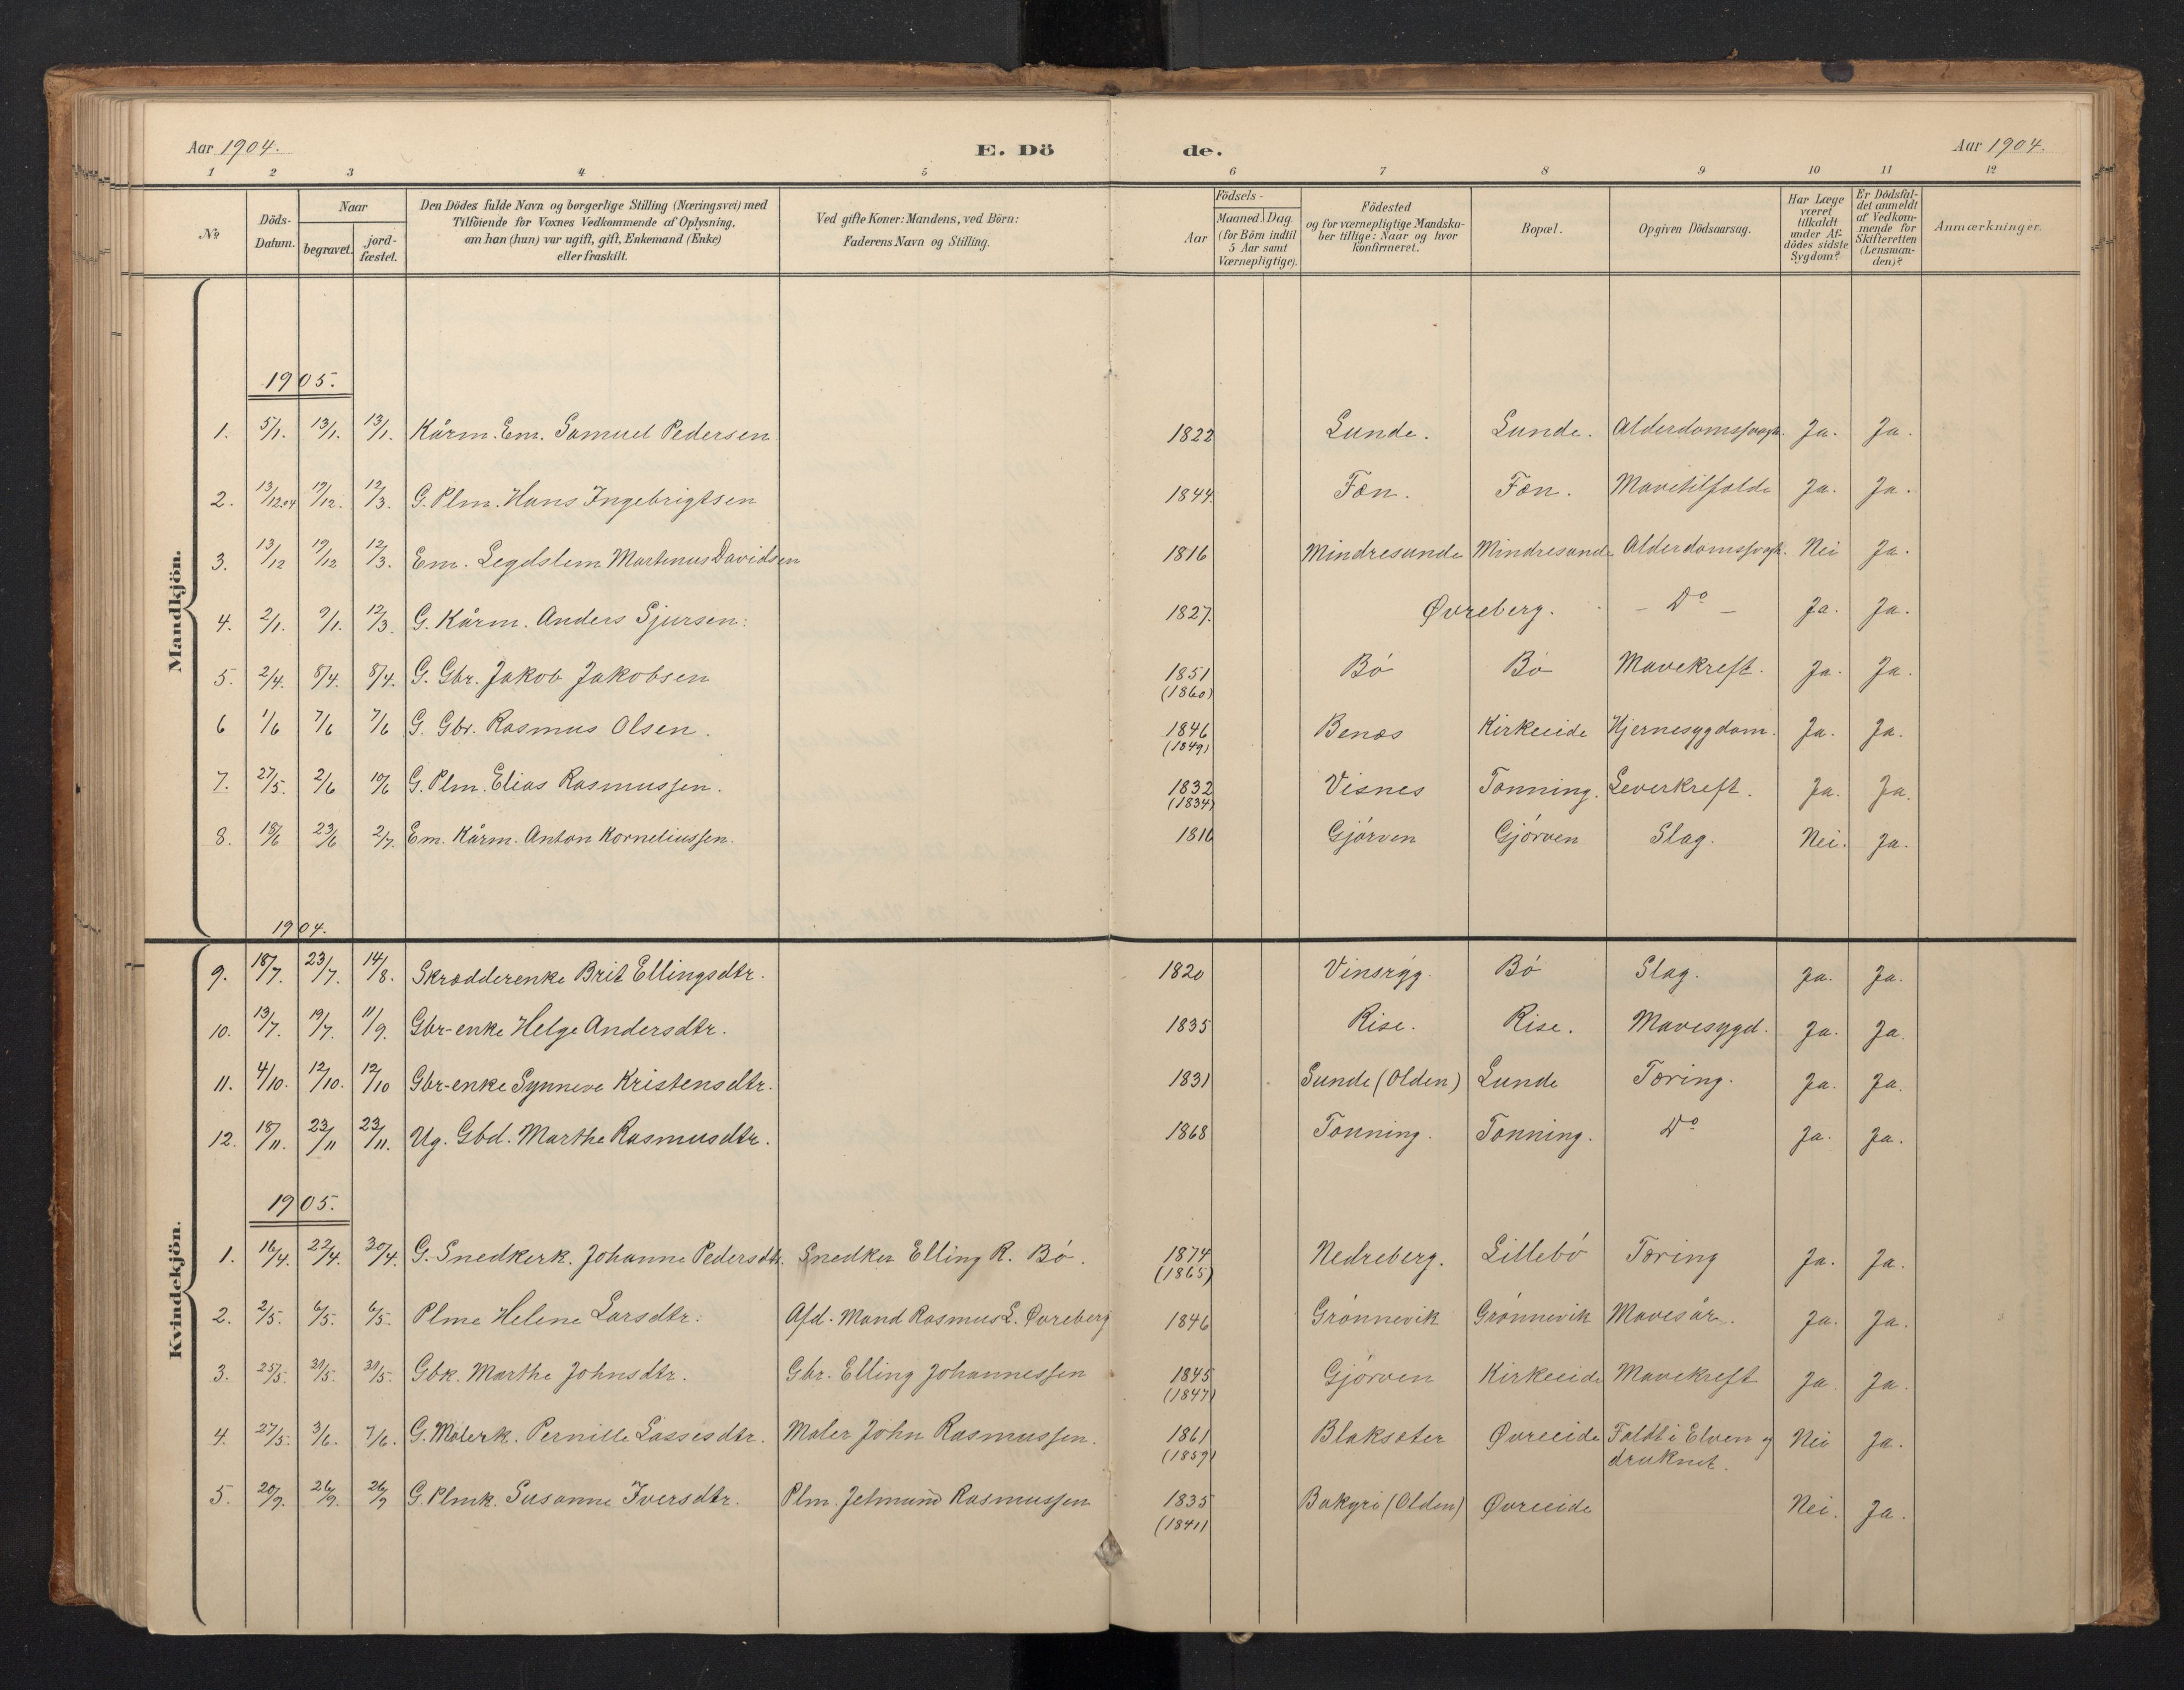 Aar 1904. E. Dö de. Aar 1904.
1 2 3 4 5 6 7 8 9 10 11 12
No
Döds-Datum.
Naar
begravet. jord-fæstet.
Den Dödes fulde Navn og borgerlige Stilling (Næringsvei) med
Tilföiende for Voxnes Vedkommende af Oplysning,
om han (hun) var ugift, gift, Enkemand (Enke)
eller fraskilt.
Ved gifte Koner: Mandens, ved Börn:
Faderens Navn og Stilling.
Födsels-
Aar
Maaned. Dag.
(for Börn indtil
5 Aar samt
Værnepligtige).
Födested
og for værnepligtige Mandska-
ber tillige: Naar og hvor
konfirmeret.
Bopæl.
Opgiven Dödsaarsag.
Har Læge
været
tilkaldt
under Af-
dödes sidste
Sygdom?
Er Dödsfal-
det anmeldt
af Vedkom-
mende for
Skifteretten
(Lensman-
den)?
Anmærkninger.
Mandkjön.
1905.
1. 5/1. 13/1. 13/1. Kårm. Em. Samuel Pedersen 1822 Lunde. Lunde. Ja. Ja.
2. 13/12.04 19/12. 12/3. G. Plm. Hans Ingebrigtsen 1844 Fæn. Fæn. Mavetilfælde Ja. Ja.
3. 13/12 19/12 12/3. Em. Legdslem Martinus Davidsen 1816 Mindresunde Mindresunde Nei Ja.
4. 2/1. 9/1. 12/3. G. Kårm. Anders Sjursen. 1827. Øvreberg. - Do - Ja. Ja.
5. 2/4. 8/4. 8/4. G. Gbr. Jakob Jakobsen 1851 Bö Bö Mavekreft. Ja. Ja.
(1860)
6 1/6 7/6 7/6 G. Gbr. Rasmus Olsen. 1846 Benæs Kirkeeide Hjernesygdom. Ja. Ja.
(1849)
7. 27/5. 2/6 10/6 G. Plm. Elias Rasmussen. 1832 Visnes Tonning. Leverkreft. Ja. Ja.
(1834)
8. 18/6 23/6 2/7. Em. Kårm. Anton Korneliussen. 1816 Gjörven Gjörven Slag. Nei. Ja.
1904.
Kvindekjön.
9. 18/7. 23/7. 14/8. Skrædderenke Brit Ellingsdtr. 1820 Vinsrýg. Bö Slag. Ja. Ja.
10. 13/7. 19/7. 11/9. Gbr-enke Helge Andersdtr. 1835 Rise. Rise. Mavesygd. Ja. Ja
11. 4/10. 12/10. 12/10 Gbr-enke Synneve Kristensdtr. 1831 Sunde (Olden) Lunde Tæring. Ja. Ja.
12. 18/11. 23/11 23/11. Ug. Gbd. Marthe Rasmusdtr. 1868 Tonning. Tonning. Do Ja. Ja.
1905.
1. 16/4. 22/4. 30/4. G. Snedkerk. Johanne Pedersdtr. Snedker Elling R. Bö. 1874 Nedreberg. Lillebö Tæring Ja. Ja.
(1865)
2. 2/5. 6/5. 6/5. Plme Helene Larsdtr. Afd. Mand Rasmus L. Øvreberg 1846 Grönnevik Grönnevik Mavesår. Ja. Ja.
3. 25/5. 31/5. 31/5. Gbk. Marthe Johnsdtr. Gbr. Elling Johannessen 1845 Gjörven Kirkeeide Mavekreft Ja. Ja.
(1847)
4. 27/5. 3/6. 7/6. G. Malerk. Pernille Lassesdtr. Maler John Rasmussen. 1861 Blaksæter Øvreeide Faldt i Elven og Nei Ja.
(1859) druknet.
5. 20/9. 26/9. 26/9 G. Plmk. Susanne Iversdtr. Plm. Jetmund Rasmussen 1835 Bakyri (Olden) Øvreeide Nei. Ja.
(1841)